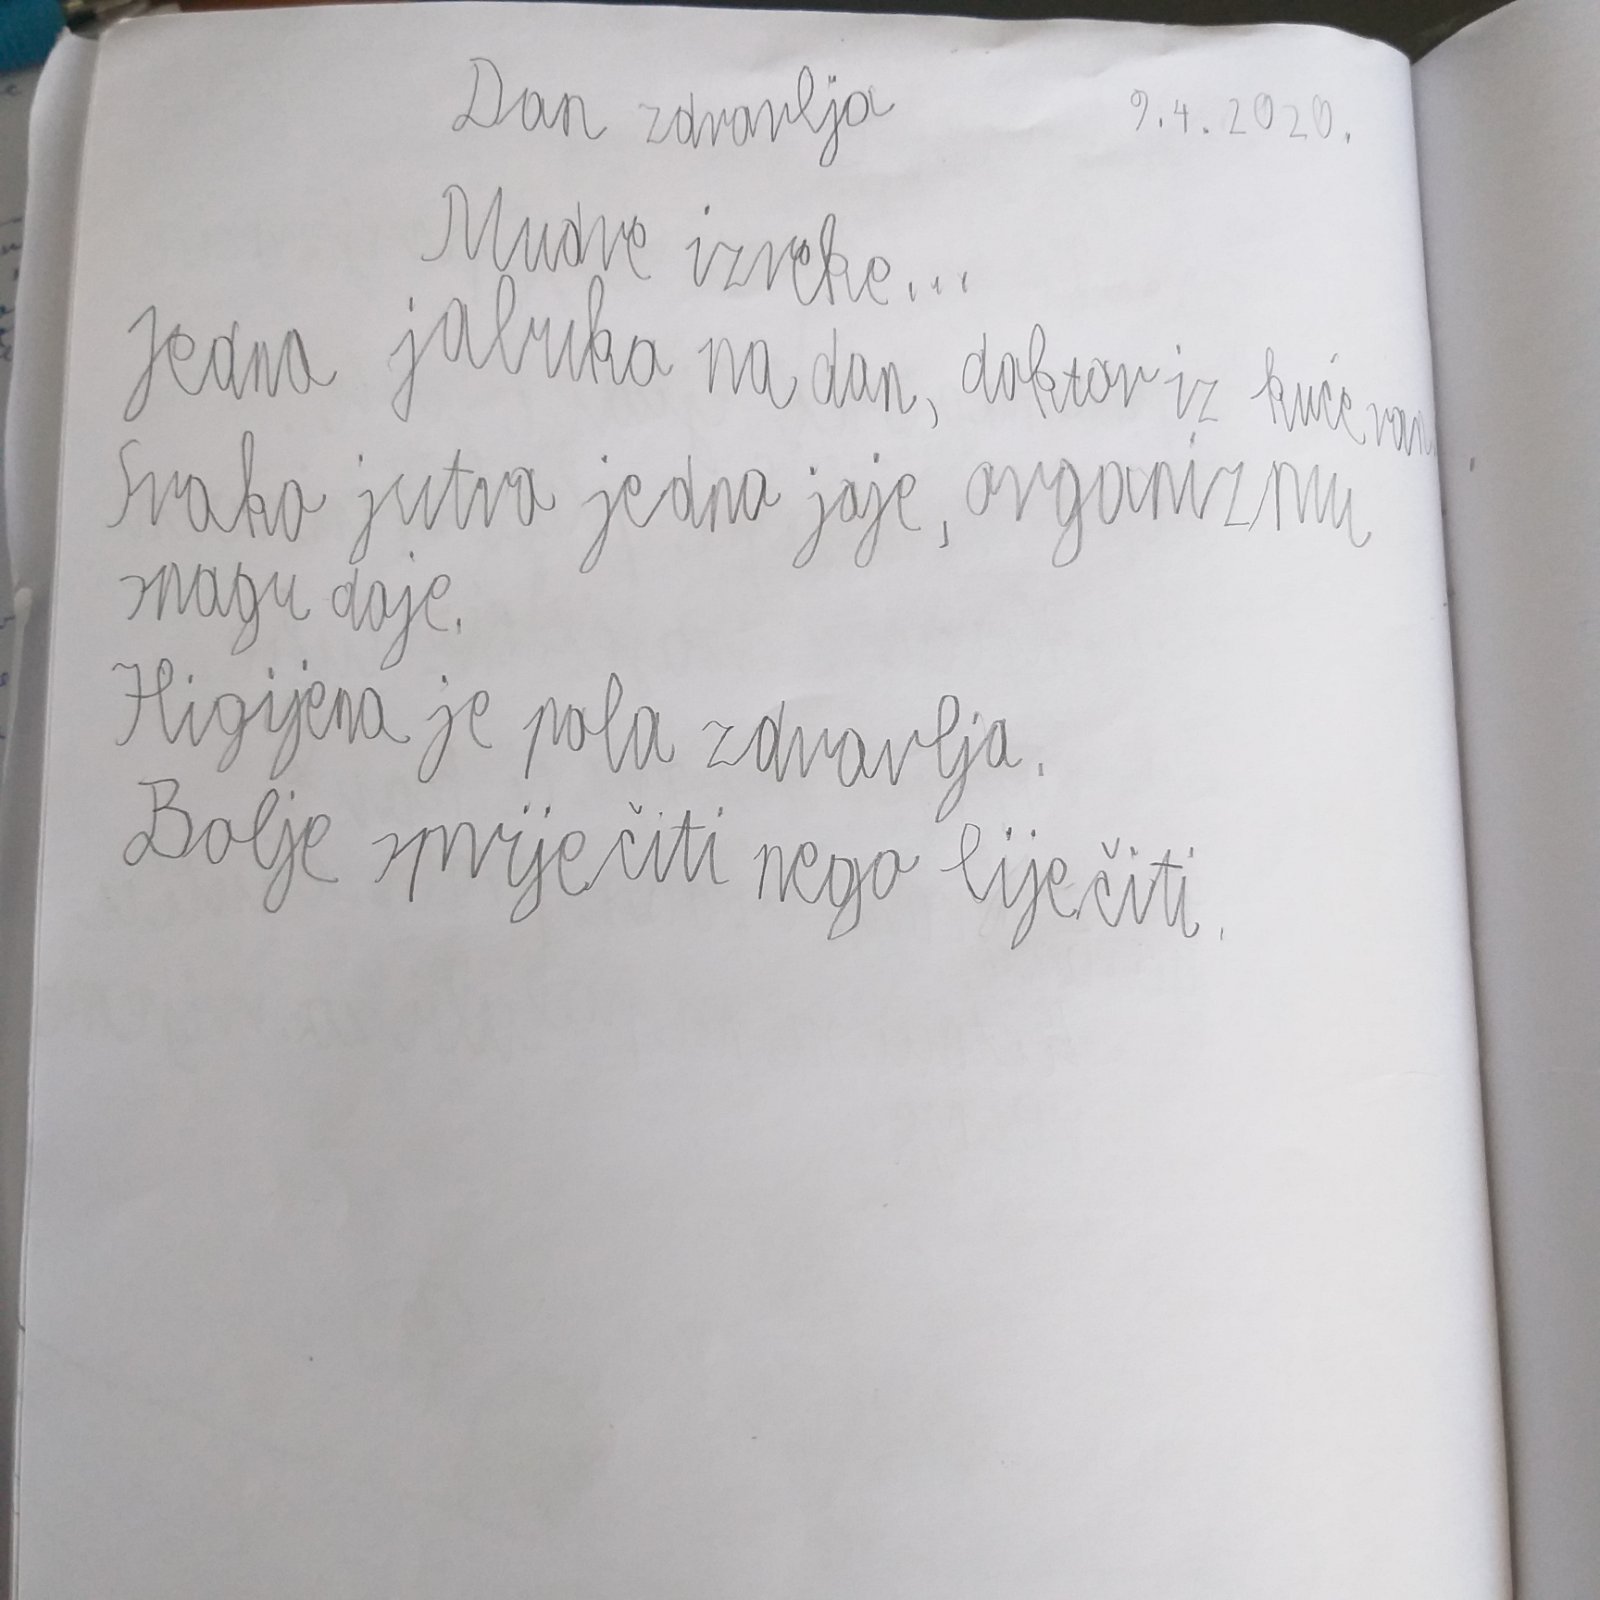 Dan zdravlja 9.4.2020.
Mudre izreke...
Jedna jabuka na dan, doktor iz kuće van
Svako jutro jedno jaje, organizmu
snagu daje.
Higijena je pola zdravlja.
Bolje spriječiti nego liječiti.